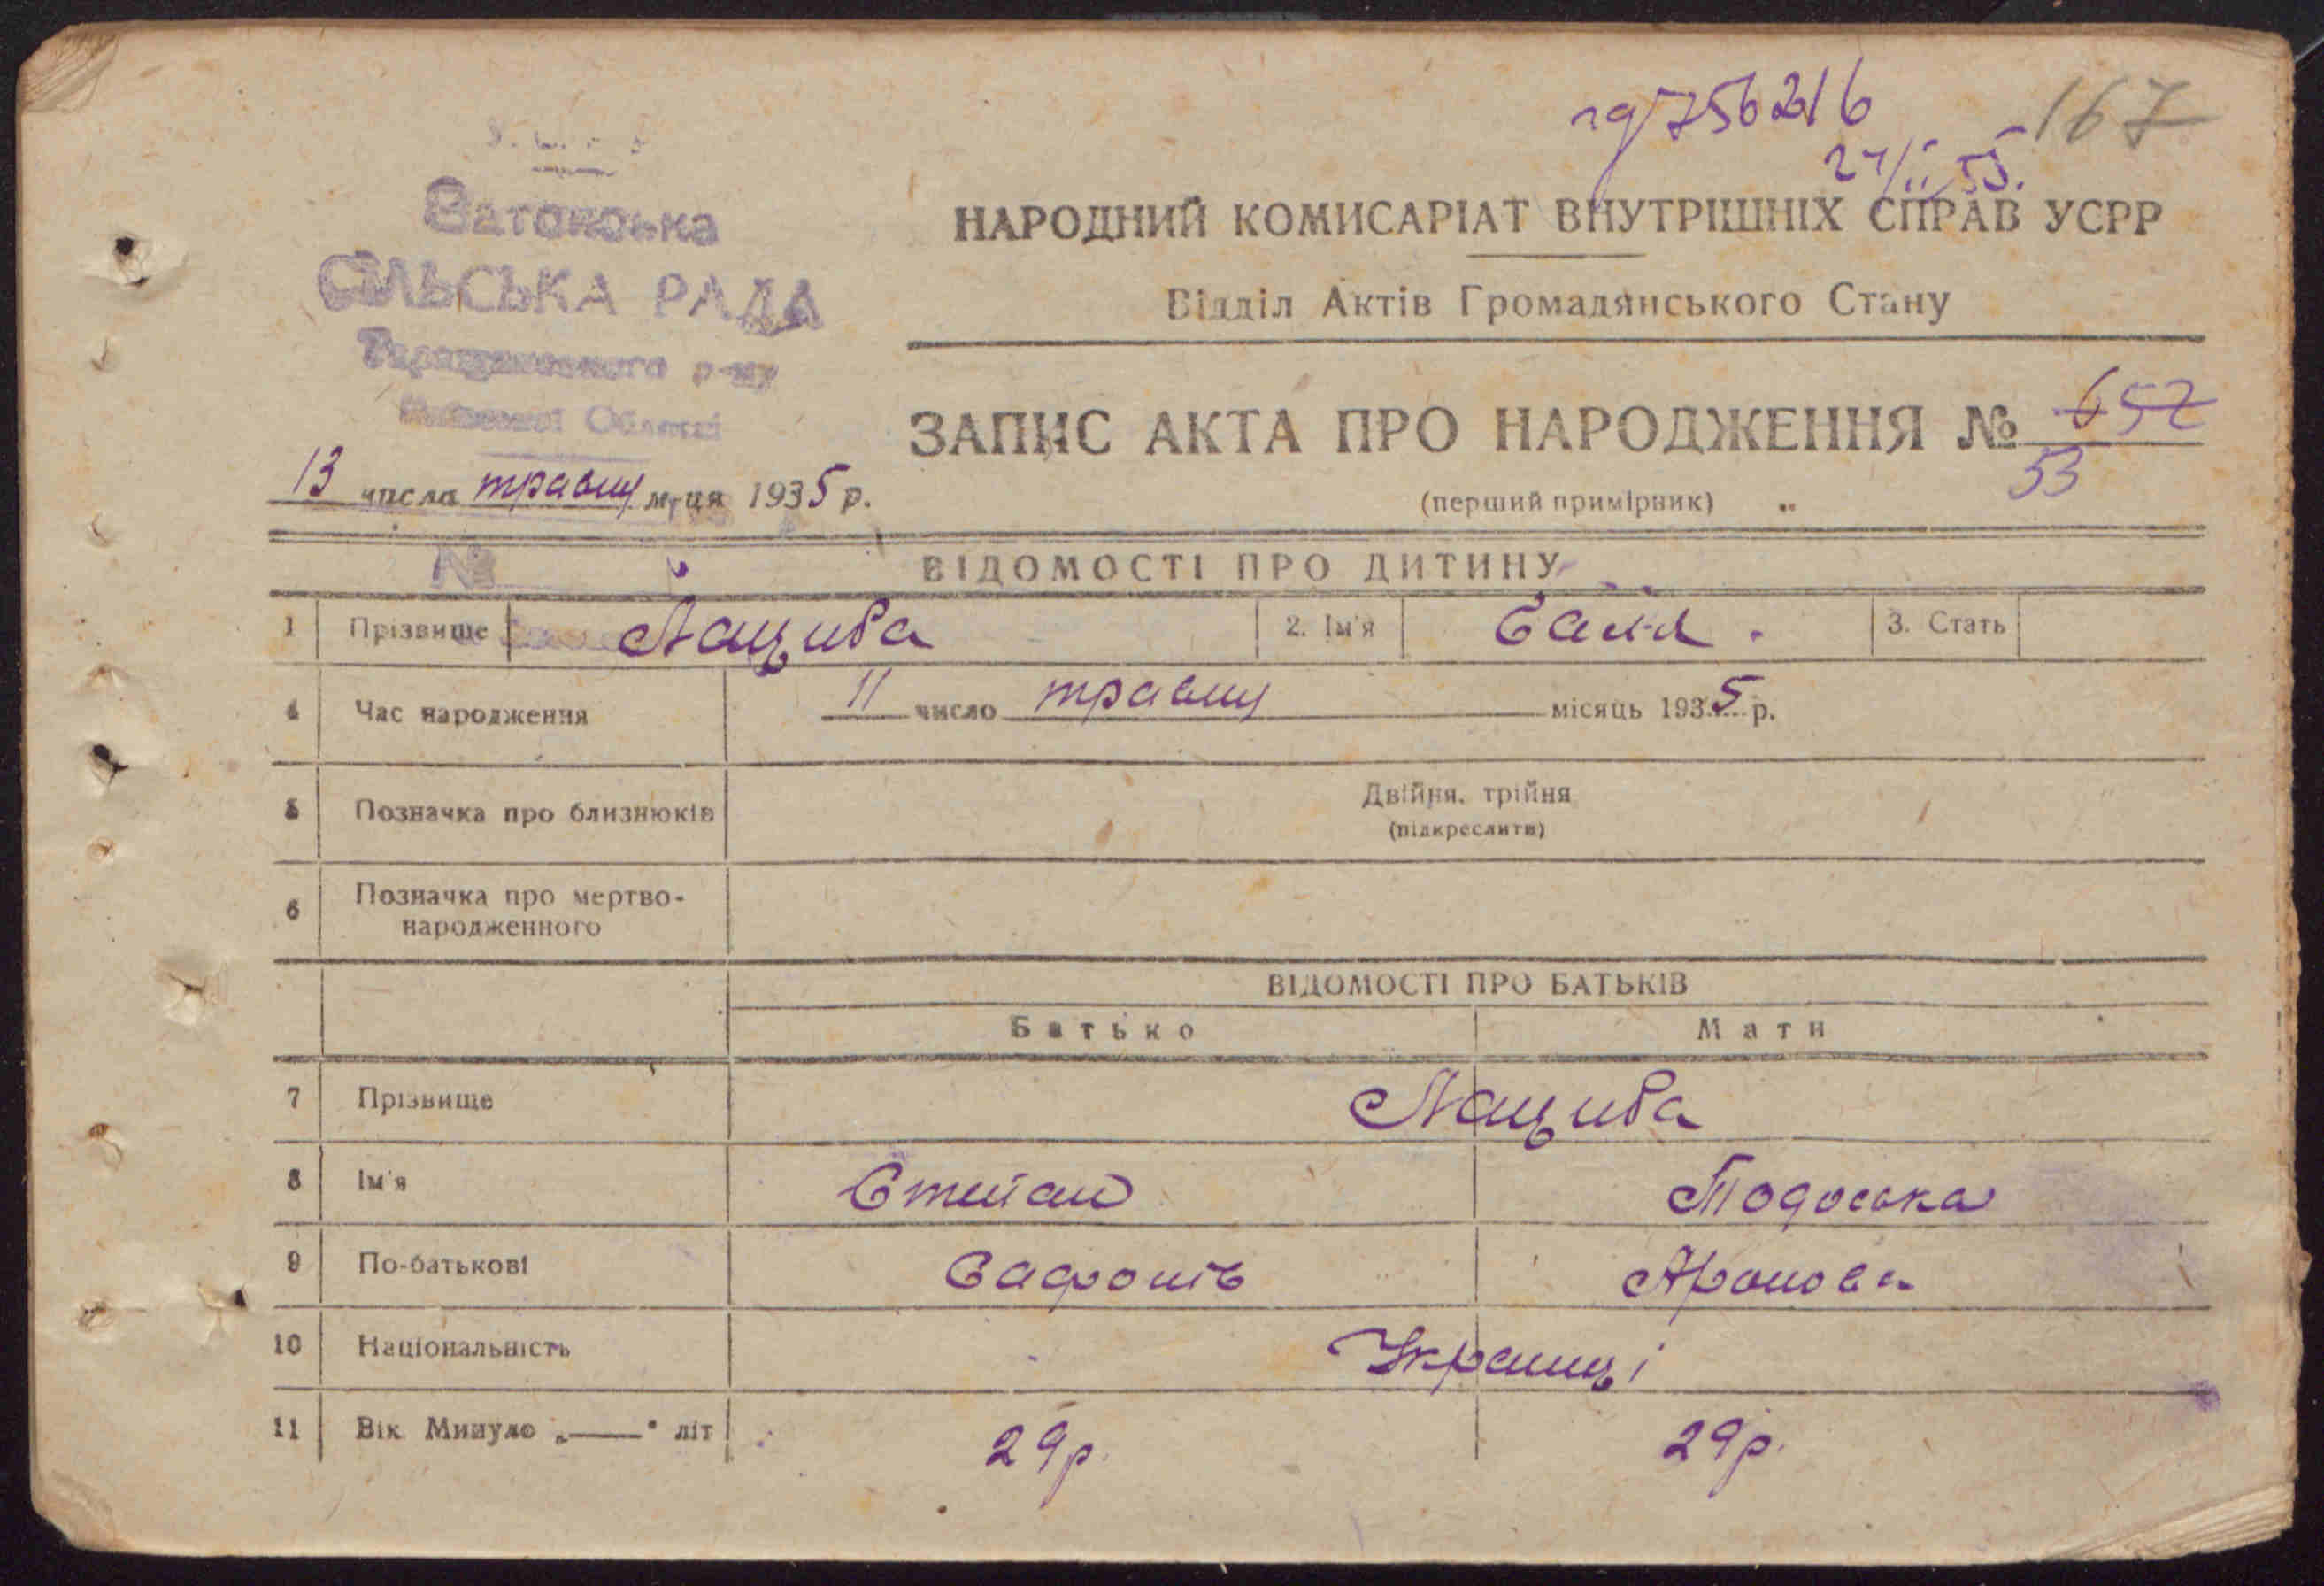 167
24/II 55.
НАРОДНИЙ КОМИСАРІАТ ВНУТРІШНІХ СПРАВ УСРР
Відділ Актів Громадянського Стану
СІЛЬСЬКА РАДА
р-ну
Області
ЗАПИС АКТА ПРО НАРОДЖЕННЯ № 652
53
13 числа травня м-ця 1935 р.
(перший примірник)
№
ВІДОМОСТІ ПРО ДИТИНУ
1 Прізвище Лациба 2. Ім'я 3. Стать
4 Час народження 11 число травня місяць 1935 р.
5 Позначка про близнюків Двійня, трійня
(підкреслити)
6 Позначка про мертво-
народженного
ВІДОМОСТІ ПРО БАТЬКІВ
Батько Мати
7 Прізвище Лациба
8 Ім'я Степан Тодоська
9 По-батькові Сафонів
10 Національність Українці
11 Вік Минуло „—“ літ 29р. 29р.